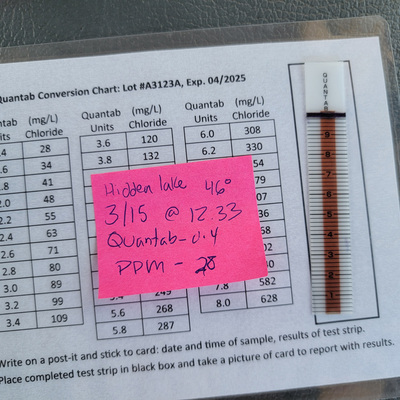 Quantab Conversion Chart: Lot #A3123A, Exp. 04/2025
uantab (mg/L)
its Chloride
.4 28
.6 34
.8 41
2.0 48
2.2 55
2.4 63
2.6 71
2.8 80
3.0 89
3.2 99
3.4 109
Quantab (mg/L)
Units Chloride
3.6 120
3.8 132
5.4 249
5.6 268
5.8 287
Quantab (mg/L)
Units Chloride
6.0 308
6.2 330
54
79
07
36
7.8 582
8.0 628
Hidden lake 46°
3/15 @ 12:33
Quantab- 0.4
PPM - 28
QUANTAB
9
8
7
6
5
4
3
2
1
Write on a post-it and stick to card: date and time of sample, results of test strip.
Place completed test strip in black box and take a picture of card to report with results.